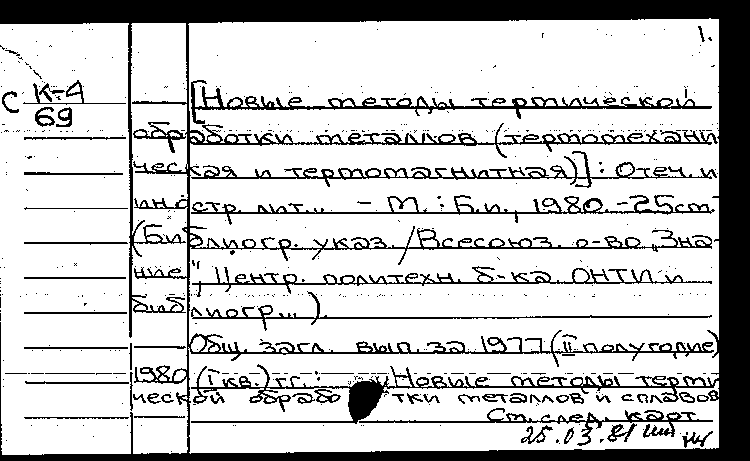 1.
С К-4
69
[Новые методы термической
обработки металлов (термомехани-
ческая и термомагнитная)]: Отеч. и
иностр. лит... - М.: Б.и., 1980.-25см.-
(Библиогр. указ./Всесоюз. о-во „Зна-
ние", Центр. политехн. б-ка. ОНТИ и
библиогр...).
Общ. загл. вып. за 1977 (II полугодие)
1980 (I кв.) гг.: „Новые методы терми
ческой обработки металлов и сплавов
См. след. карт.
25.03.81